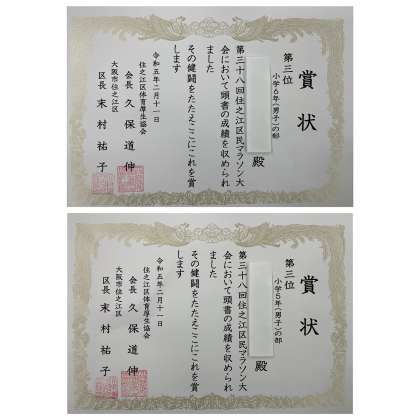 賞状
第三位
小学6年(男子)の部
殿
第三十八回住之江区民マラソン大
会において頭書の成績を収められ
ました
その健闘をたたえここにこれを賞
します
令和五年二月十一日
住之江区体育厚生協会
会長 久保道伸
大阪市住之江区
区長 末村祐子
賞状
第三位
小学5年(男子)の部
殿
第三十八回住之江区民マラソン大
会において頭書の成績を収められ
ました
その健闘をたたえここにこれを賞
します
令和五年二月十一日
住之江区体育厚生協会
会長 久保道伸
大阪市住之江区
区長 末村祐子